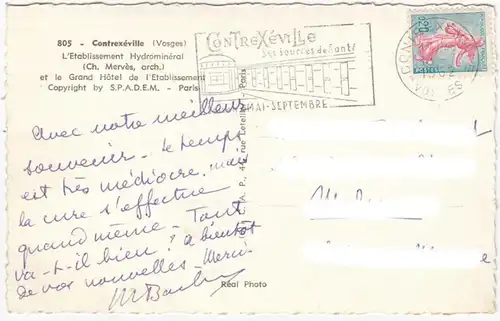 805 - Contrexéville (Vosges)
L'Etablissement Hydrominéral
(Ch. Mervès, arch.)
et le Grand Hôtel de l'Etablissement
Copyright by S.P.A.D.E.M. - Paris
CONTREXÉVILLE
Ses sources de santé
MAI-SEPTEMBRE
0,20
POSTES
Avec notre meilleur
souvenir - Le temps
est très médiocre, mais
la cure s'effectue
quand même - Tout
va-t-il bien ? à bientôt
de vos nouvelles - Merci -
rue Letellier - Paris
Réal Photo